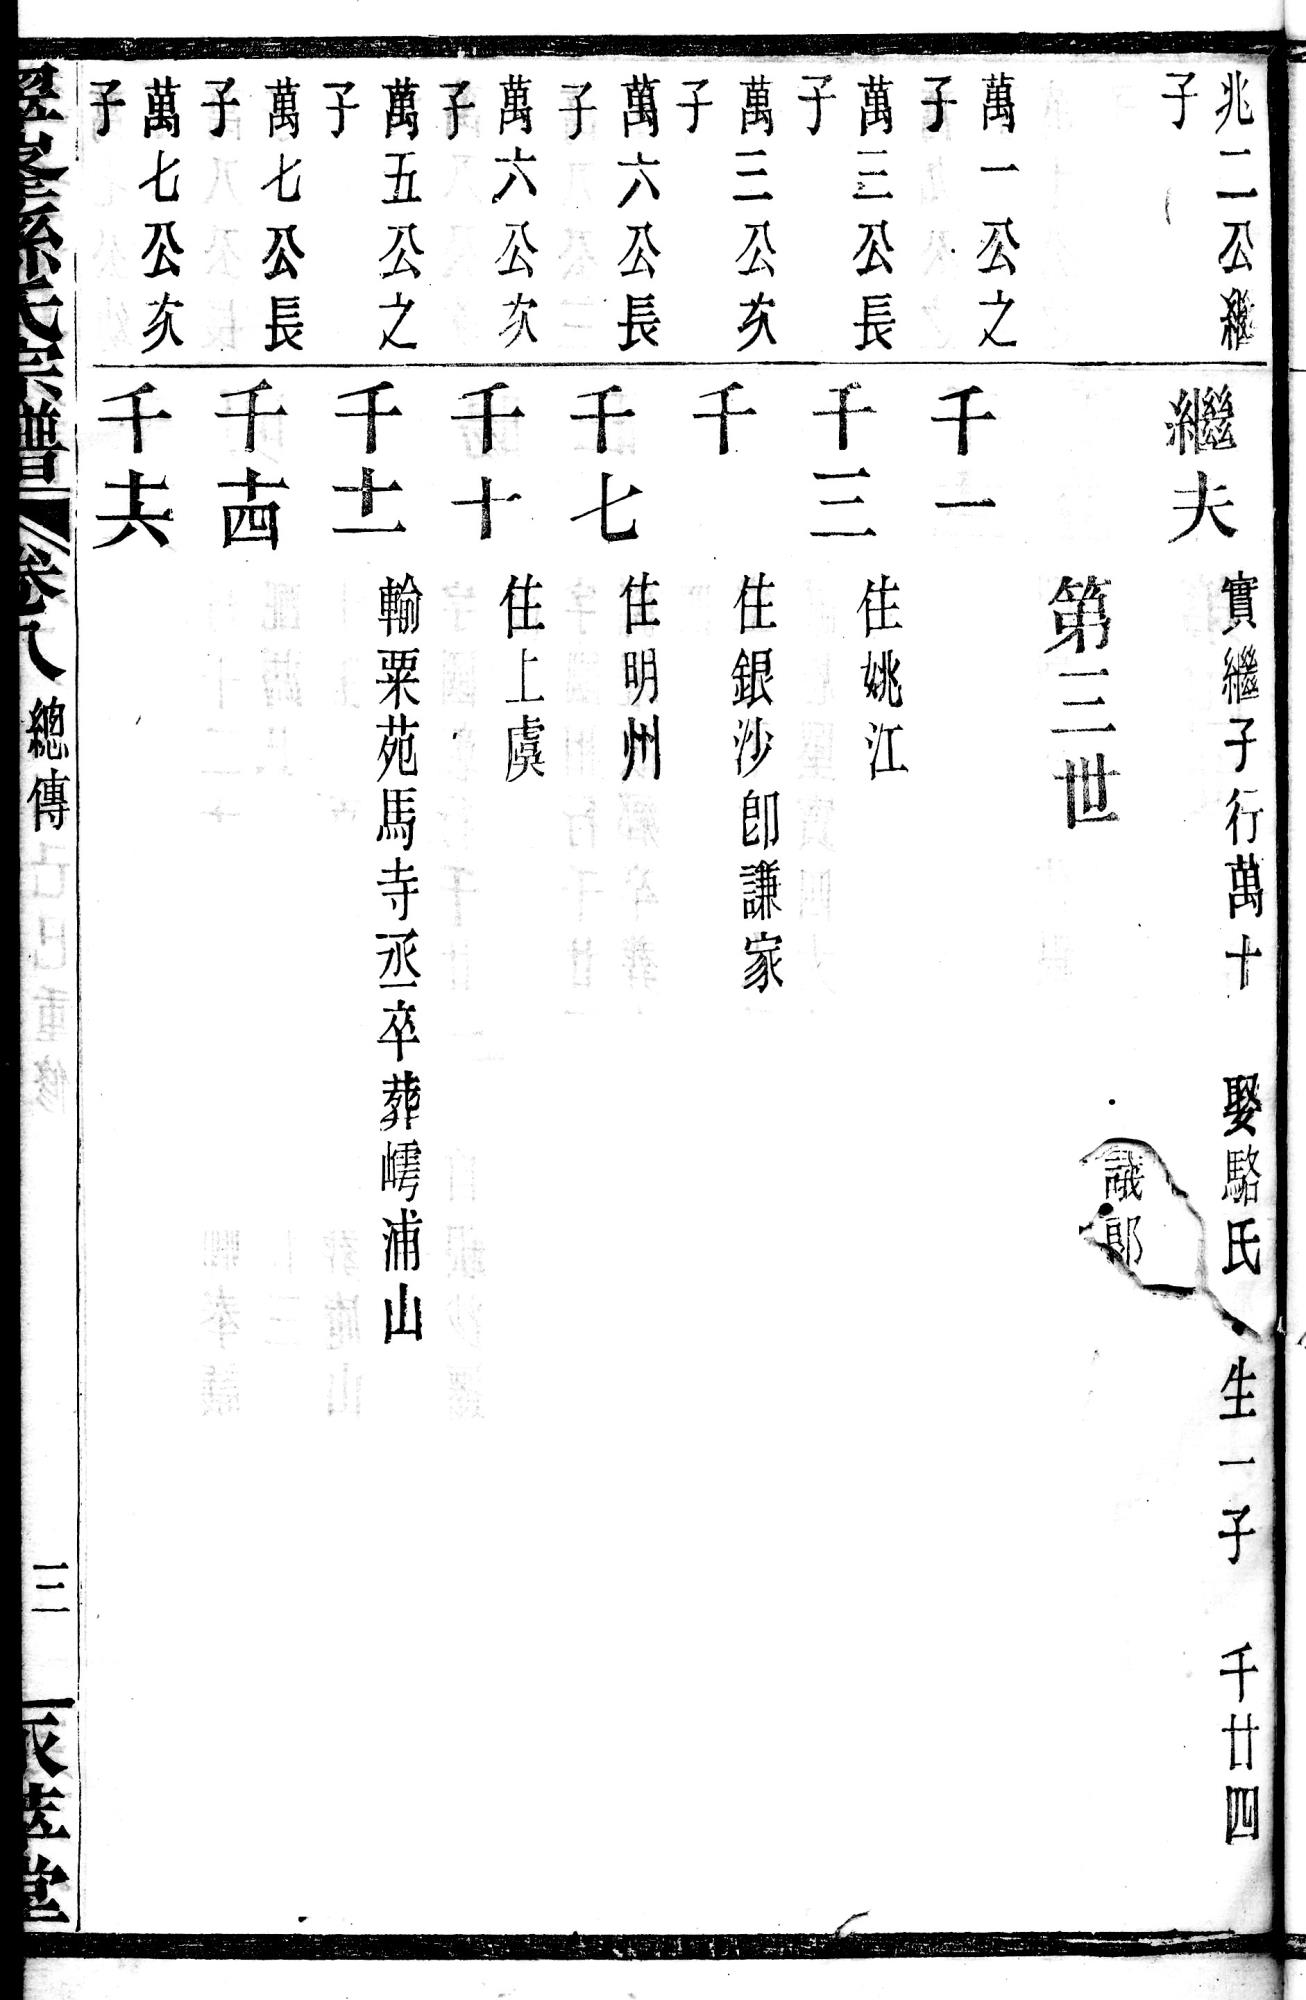 兆二公繼
子
繼夫
實繼子行萬十 娶駱氏 生一子 千廿四
議郎
第三世
萬一公之
子
千一
萬三公長
子
千三
住姚江
萬三公次
子
千
住銀沙卽謙家
萬六公長
子
千七
住明州
萬六公次
子
千十
住上虞
萬五公之
子
千十一
輸粟苑馬寺丞卒葬嶀浦山
萬七公長
子
千十四
萬七公次
子
千十六
孫氏宗譜
卷八
總傳
三
堂